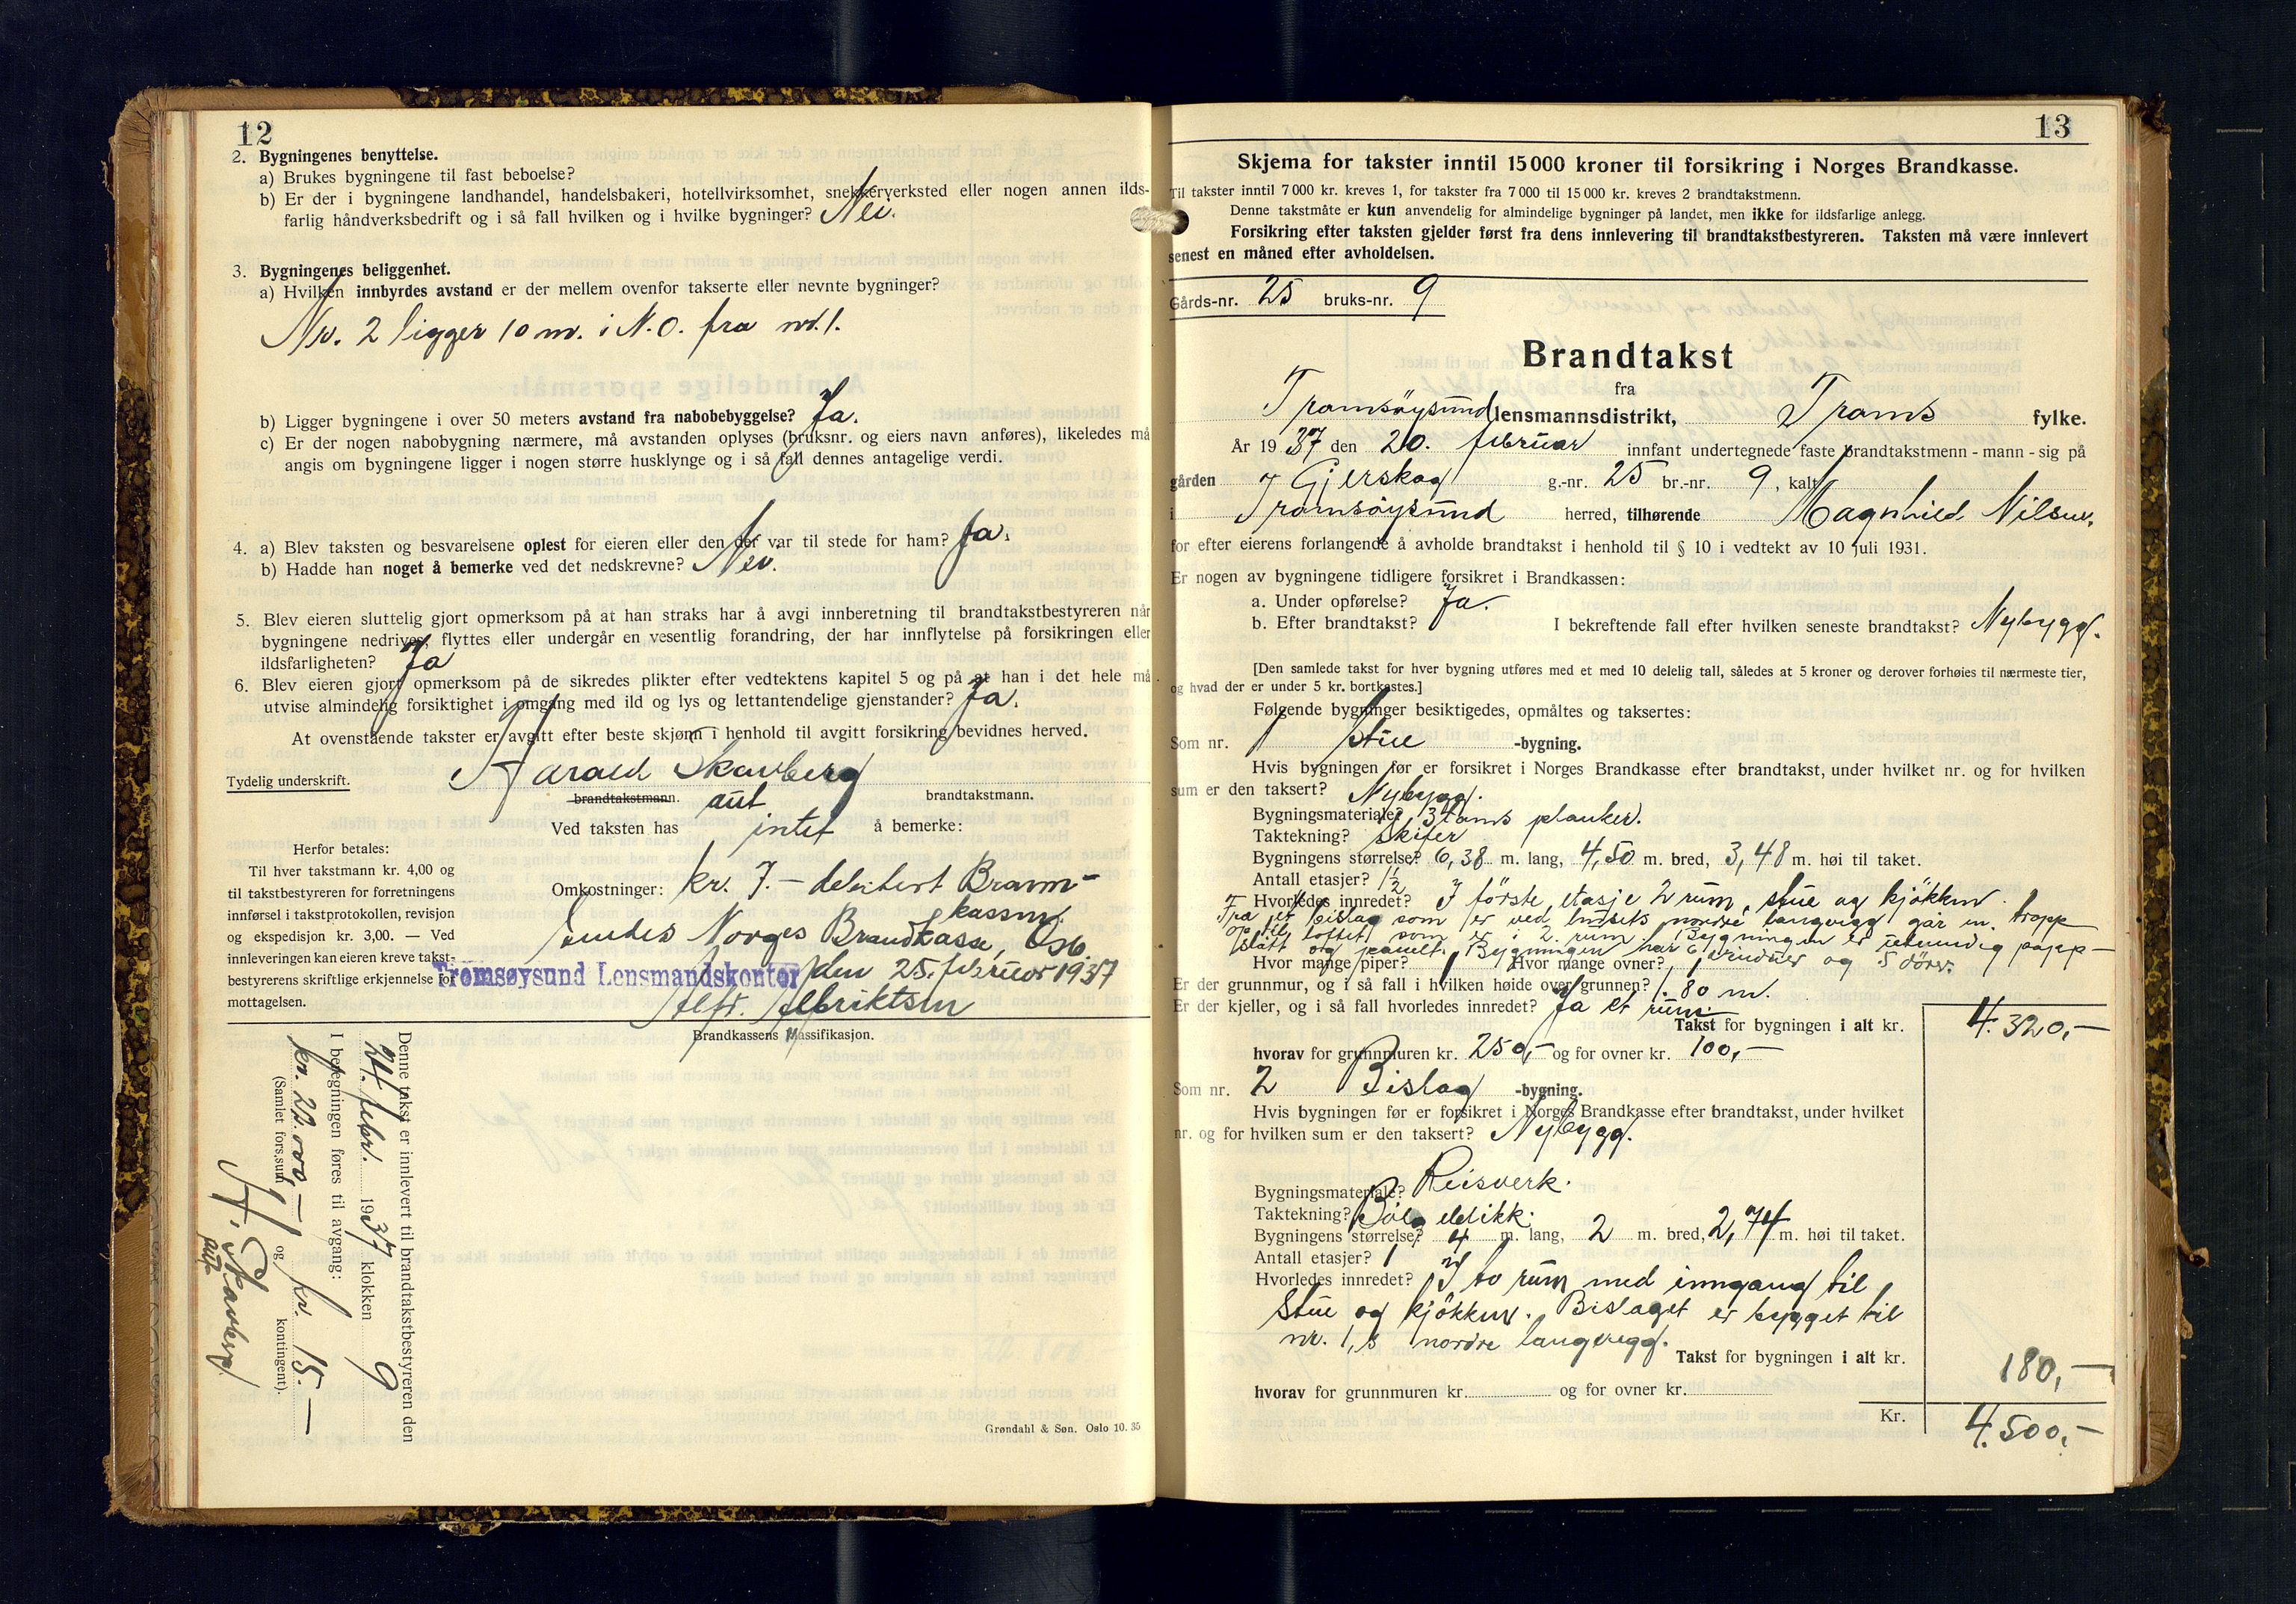 12
2. Bygningenes benyttelse.
a) Brukes bygningene til fast beboelse?
b) Er der i bygningene landhandel, handelsbakeri, hotellvirksomhet, snekkerverksted eller nogen annen ilds-
farlig håndverksbedrift og i så fall hvilken og i hvilke bygninger? Nei.
3. Bygningenes beliggenhet.
a) Hvilken innbyrdes avstand er der mellem ovenfor takserte eller nevnte bygninger?
Nr. 2 ligger 10 m. i N.O. fra nr. 1.
b) Ligger bygningene i over 50 meters avstand fra nabobebyggelse? Ja.
c) Er der nogen nabobygning nærmere, må avstanden oplyses (bruksnr. og eiers navn anføres), likeledes må
angis om bygningene ligger i nogen større husklynge og i så fall dennes antagelige verdi.
4. a) Blev taksten og besvarelsene oplest for eieren eller den der var til stede for ham? Ja.
b) Hadde han noget å bemerke ved det nedskrevne? Nei.
5. Blev eieren sluttelig gjort opmerksom på at han straks har å avgi innberetning til brandtakstbestyreren når
bygningene nedrives, flyttes eller undergår en vesentlig forandring, der har innflytelse på forsikringen eller
ildsfarligheten? Ja
6. Blev eieren gjort opmerksom på de sikredes plikter efter vedtektens kapitel 5 og på at han i det hele må
utvise almindelig forsiktighet i omgang med ild og lys og lettantendelige gjenstander? Ja.
At ovenstående takster er avgitt efter beste skjønn i henhold til avgitt forsikring bevidnes herved.
Tydelig underskrift. Harald Skavberg
brandtakstmann. aut brandtakstmann.
Ved taksten has intet å bemerke:
Herfor betales:
Til hver takstmann kr. 4,00 og
til takstbestyreren for forretningens
innførsel i takstprotokollen, revisjon
og ekspedisjon kr. 3,00. — Ved
innleveringen kan eieren kreve takst-
bestyrerens skriftlige erkjennelse for
mottagelsen.
Omkostninger: kr. 7.– debitert Brann-
kassen.
Sendes Norges Brandkasse, Oslo.
Tromsøysund Lensmandskontor den 25. februar 1937
Alfr. Albriktsen
Brandkassens klassifikasjon.
Denne takst er innlevert til brandtakstbestyreren den
24. febr. 1937 klokken 9
I betegningen føres til avgang:
kr. 22.000,– og kr. 15.–
(Samlet fors.sum, kontingent).
H. Skavberg
aut
Grøndahl & Søn. Oslo 10. 35
13
Skjema for takster inntil 15000 kroner til forsikring i Norges Brandkasse.
Til takster inntil 7 000 kr. kreves 1, for takster fra 7 000 til 15 000 kr. kreves 2 brandtakstmenn.
Denne takstmåte er kun anvendelig for almindelige bygninger på landet, men ikke for ildsfarlige anlegg.
Forsikring efter taksten gjelder først fra dens innlevering til brandtakstbestyreren. Taksten må være innlevert
senest en måned efter avholdelsen.
Gårds-nr. 25 bruks-nr. 9
Brandtakst
fra
Tromsøysund lensmannsdistrikt, Troms fylke.
År 1937 den 20. februar innfant undertegnede faste brandtakstmenn - mann - sig på
gården Gjerskog g.-nr. 25 br.-nr. 9, kalt
i Tromsøysund herred, tilhørende Magnhild Nilsen.
for efter eierens forlangende å avholde brandtakst i henhold til § 10 i vedtekt av 10 juli 1931.
Er nogen av bygningene tidligere forsikret i Brandkassen:
a. Under opførelse? Ja.
b. Efter brandtakst? I bekreftende fall efter hvilken seneste brandtakst? Nybygg.
[Den samlede takst for hver bygning utføres med et med 10 delelig tall, således at 5 kroner og derover forhøies til nærmeste tier,
og hvad der er under 5 kr. bortkastes.]
Følgende bygninger besiktigedes, opmåltes og taksertes:
Som nr. 1 Stue -bygning.
Hvis bygningen før er forsikret i Norges Brandkasse efter brandtakst, under hvilket nr. og for hvilken
sum er den taksert? Nybygg.
Bygningsmateriale? 3 toms planker.
Taktekning? Skifer
Bygningens størrelse? 6,38 m. lang, 4,50 m. bred, 3,48 m. høi til taket.
Antall etasjer? 1½
Hvorledes innredet? I første etasje 2 rum, stue og kjøkken.
Fra et bislag som er ved husets nordre langvegg går en tropp
op til loftet som er i 2. rum. Bygningen er utvendig papp-
slått og panelt. Bygningen har 6 vinduer og 5 dører.
Hvor mange piper? 1 Hvor mange ovner? 1
Er der grunnmur, og i så fall i hvilken høide over grunnen? 1.80 m.
Er der kjeller, og i så fall hvorledes innredet? Ja et rum.
Takst for bygningen i alt kr. 4.320,–
hvorav for grunnmuren kr. 250,– og for ovner kr. 100,–
Som nr. 2 Bislag -bygning.
Hvis bygningen før er forsikret i Norges Brandkasse efter brandtakst, under hvilket
nr. og for hvilken sum er den taksert? Nybygg.
Bygningsmateriale? Reisverk.
Taktekning? Bølgeblikk.
Bygningens størrelse? 4 m. lang, 2 m. bred, 2,74 m. høi til taket.
Antall etasjer? 1
Hvorledes innredet? I to rum med inngang til
stue og kjøkken. Bislaget er bygget til
nr. 1,s nordre langvegg.
Takst for bygningen i alt kr. 180,–
hvorav for grunnmuren kr. og for ovner kr.
Kr. 4.500,–